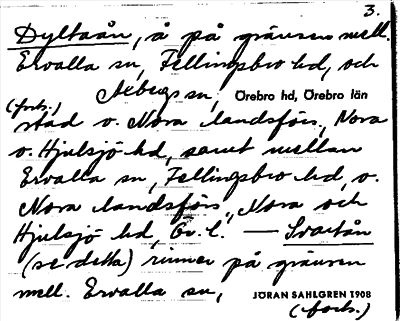 3.
Dyltaån, å på gränsen mell.
Ervalla sn, Fellingsbro hd, och
Axbergs sn, Örebro hd, Örebro län
(forts.)
städ o. Nora landsförs., Nora
o. Hjulsjö hd, samt mellan
Ervalla sn, Fellingsbro hd, o.
Nora landsförs., Nora och
Hjulsjö hd, Ör. l. — Svartån
(se detta) rinner på gränsen
mell. Ervalla sn,
JÖRAN SAHLGREN 1908
(forts.)